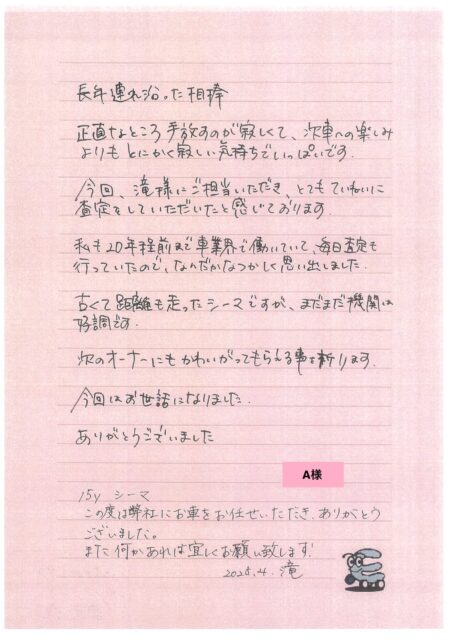 長年連れ沿った相棒
正直なところ手放すのが寂しくて、次車への楽しみ
よりもとにかく寂しい気持ちでいっぱいです.
今回、滝様にご担当いただき、とてもていねいに
査定をしていただいたと感じております.
私も20年程前まで車業界で働いていて、毎日査定も
行っていたので、なんだかなつかしく思い出しました.
古くて距離も走ったシーマですが、まだまだ機関は
好調です.
次のオーナーにもかわいがってもらえる事を祈ります.
今回はお世話になりました.
ありがとうございました
A様
15y シーマ
この度は弊社にお車をお任せいただき、ありがとう
ございました。
また何かあれば宜しくお願い致します!
2025.4. 滝